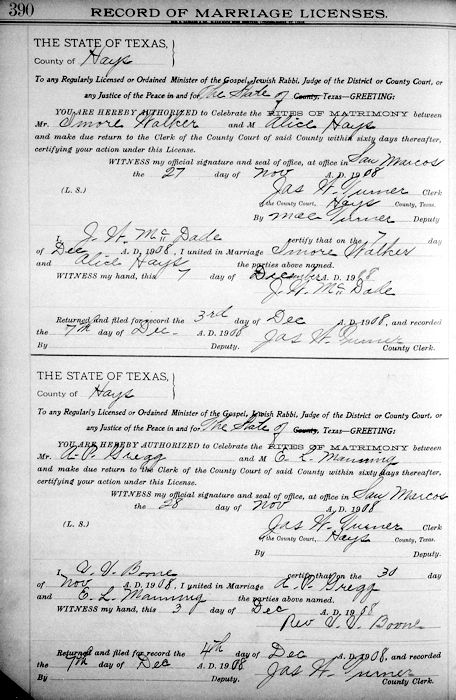 390 RECORD OF MARRIAGE LICENSES.
THE STATE OF TEXAS,
County of Hays
To any Regularly Licensed or Ordained Minister of the Gospel, Jewish Rabbi, Judge of the District or County Court, or
any Justice of the Peace in and for The State of County, Texas—GREETING:
YOU ARE HEREBY AUTHORIZED to Celebrate the RITES OF MATRIMONY between
Mr. Smore Walker and M Alice Hays
and make due return to the Clerk of the County Court of said County within sixty days thereafter,
certifying your action under this License.
WITNESS my official signature and seal of office, at office in San Marcos
the 27 day of Nov A. D. 1908
(L. S.) Jas W. Turner Clerk
of the County Court, Hays County, Texas.
By Mae Turner Deputy
I, J. W. Mc Dade certify that on the 7 day
of Dec A. D. 1908, I united in Marriage Smore Walker
and Alice Hays the parties above named.
WITNESS my hand, this 7 day of December A. D. 1908
J. W. Mc Dade
Returned and filed for record the 3rd day of Dec A. D. 1908, and recorded
the 7th day of Dec- A. D. 1908 Jas W. Turner
By Deputy. County Clerk.
THE STATE OF TEXAS,
County of Hays
To any Regularly Licensed or Ordained Minister of the Gospel, Jewish Rabbi, Judge of the District or County Court, or
any Justice of the Peace in and for The State of County, Texas—GREETING:
YOU ARE HEREBY AUTHORIZED to Celebrate the RITES OF MATRIMONY between
Mr. A. P. Gregg and M E. L. Manning
and make due return to the Clerk of the County Court of said County within sixty days thereafter,
certifying your action under this License.
WITNESS my official signature and seal of office, at office in San Marcos
the 28 day of Nov A. D. 1908
(L. S.) Jas W. Turner Clerk
of the County Court, Hays County, Texas.
By Deputy
I Boone certify that on the 30 day
of Nov A. D. 1908, I united in Marriage A. P. Gregg
and E. L. Manning the parties above named.
WITNESS my hand, this 3 day of Dec A. D. 1908
Rev Boone
Returned and filed for record the 4th day of Dec A. D. 1908, and recorded
the 7th day of Dec A. D. 1908 Jas W. Turner
By Deputy. County Clerk.